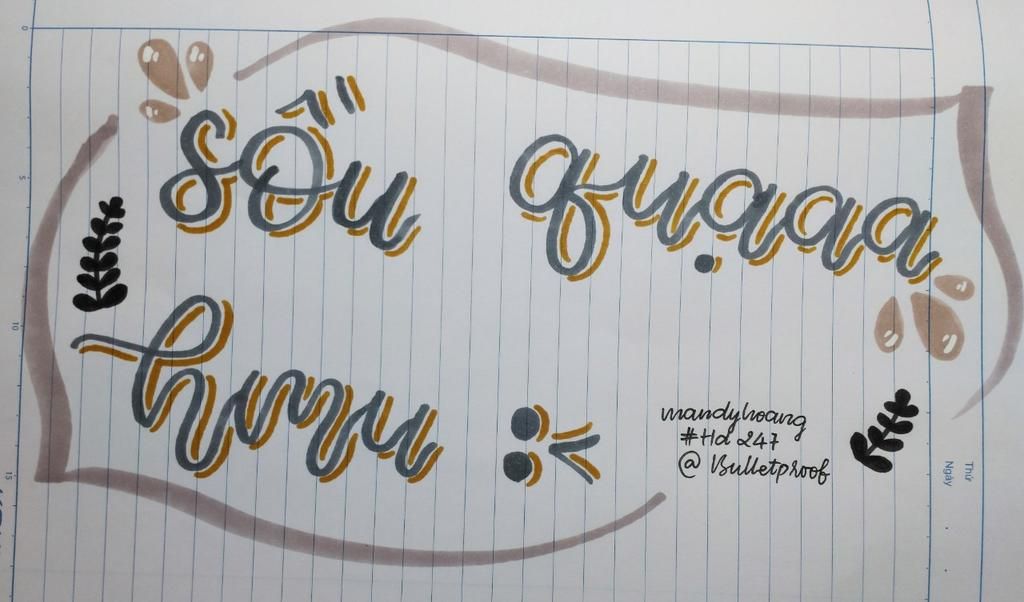 sồu quạaa
hmu :<
mandyhoang
#Hd 247
@ Bulletproof
Thứ
Ngày
0
5
10
15